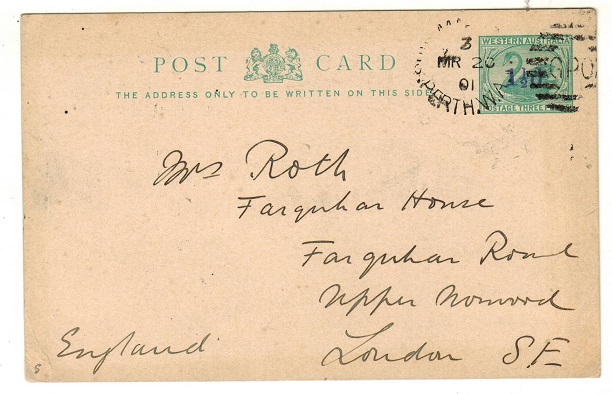 POST CARD
THE ADDRESS ONLY TO BE WRITTEN ON THIS SIDE
WESTERN AUSTRALIA
POSTAGE THREE
3
MR 26
01
PERTH. WA
GPO
Mrs Roth
Farquhar House
Farquhar Road
Upper Norwood
London S.E
England
5